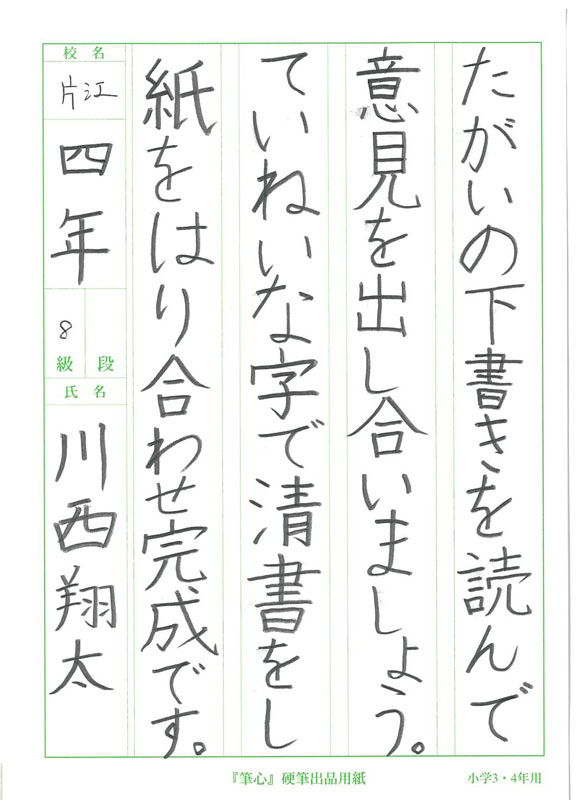 たがいの下書きを読んで
意見を出し合いましょう。
ていねいな字で清書をし
紙をはり合わせ完成です。
校名
片江
四年
8
級段
氏名
川西翔太
『筆心』硬筆出品用紙
小学3・4年用